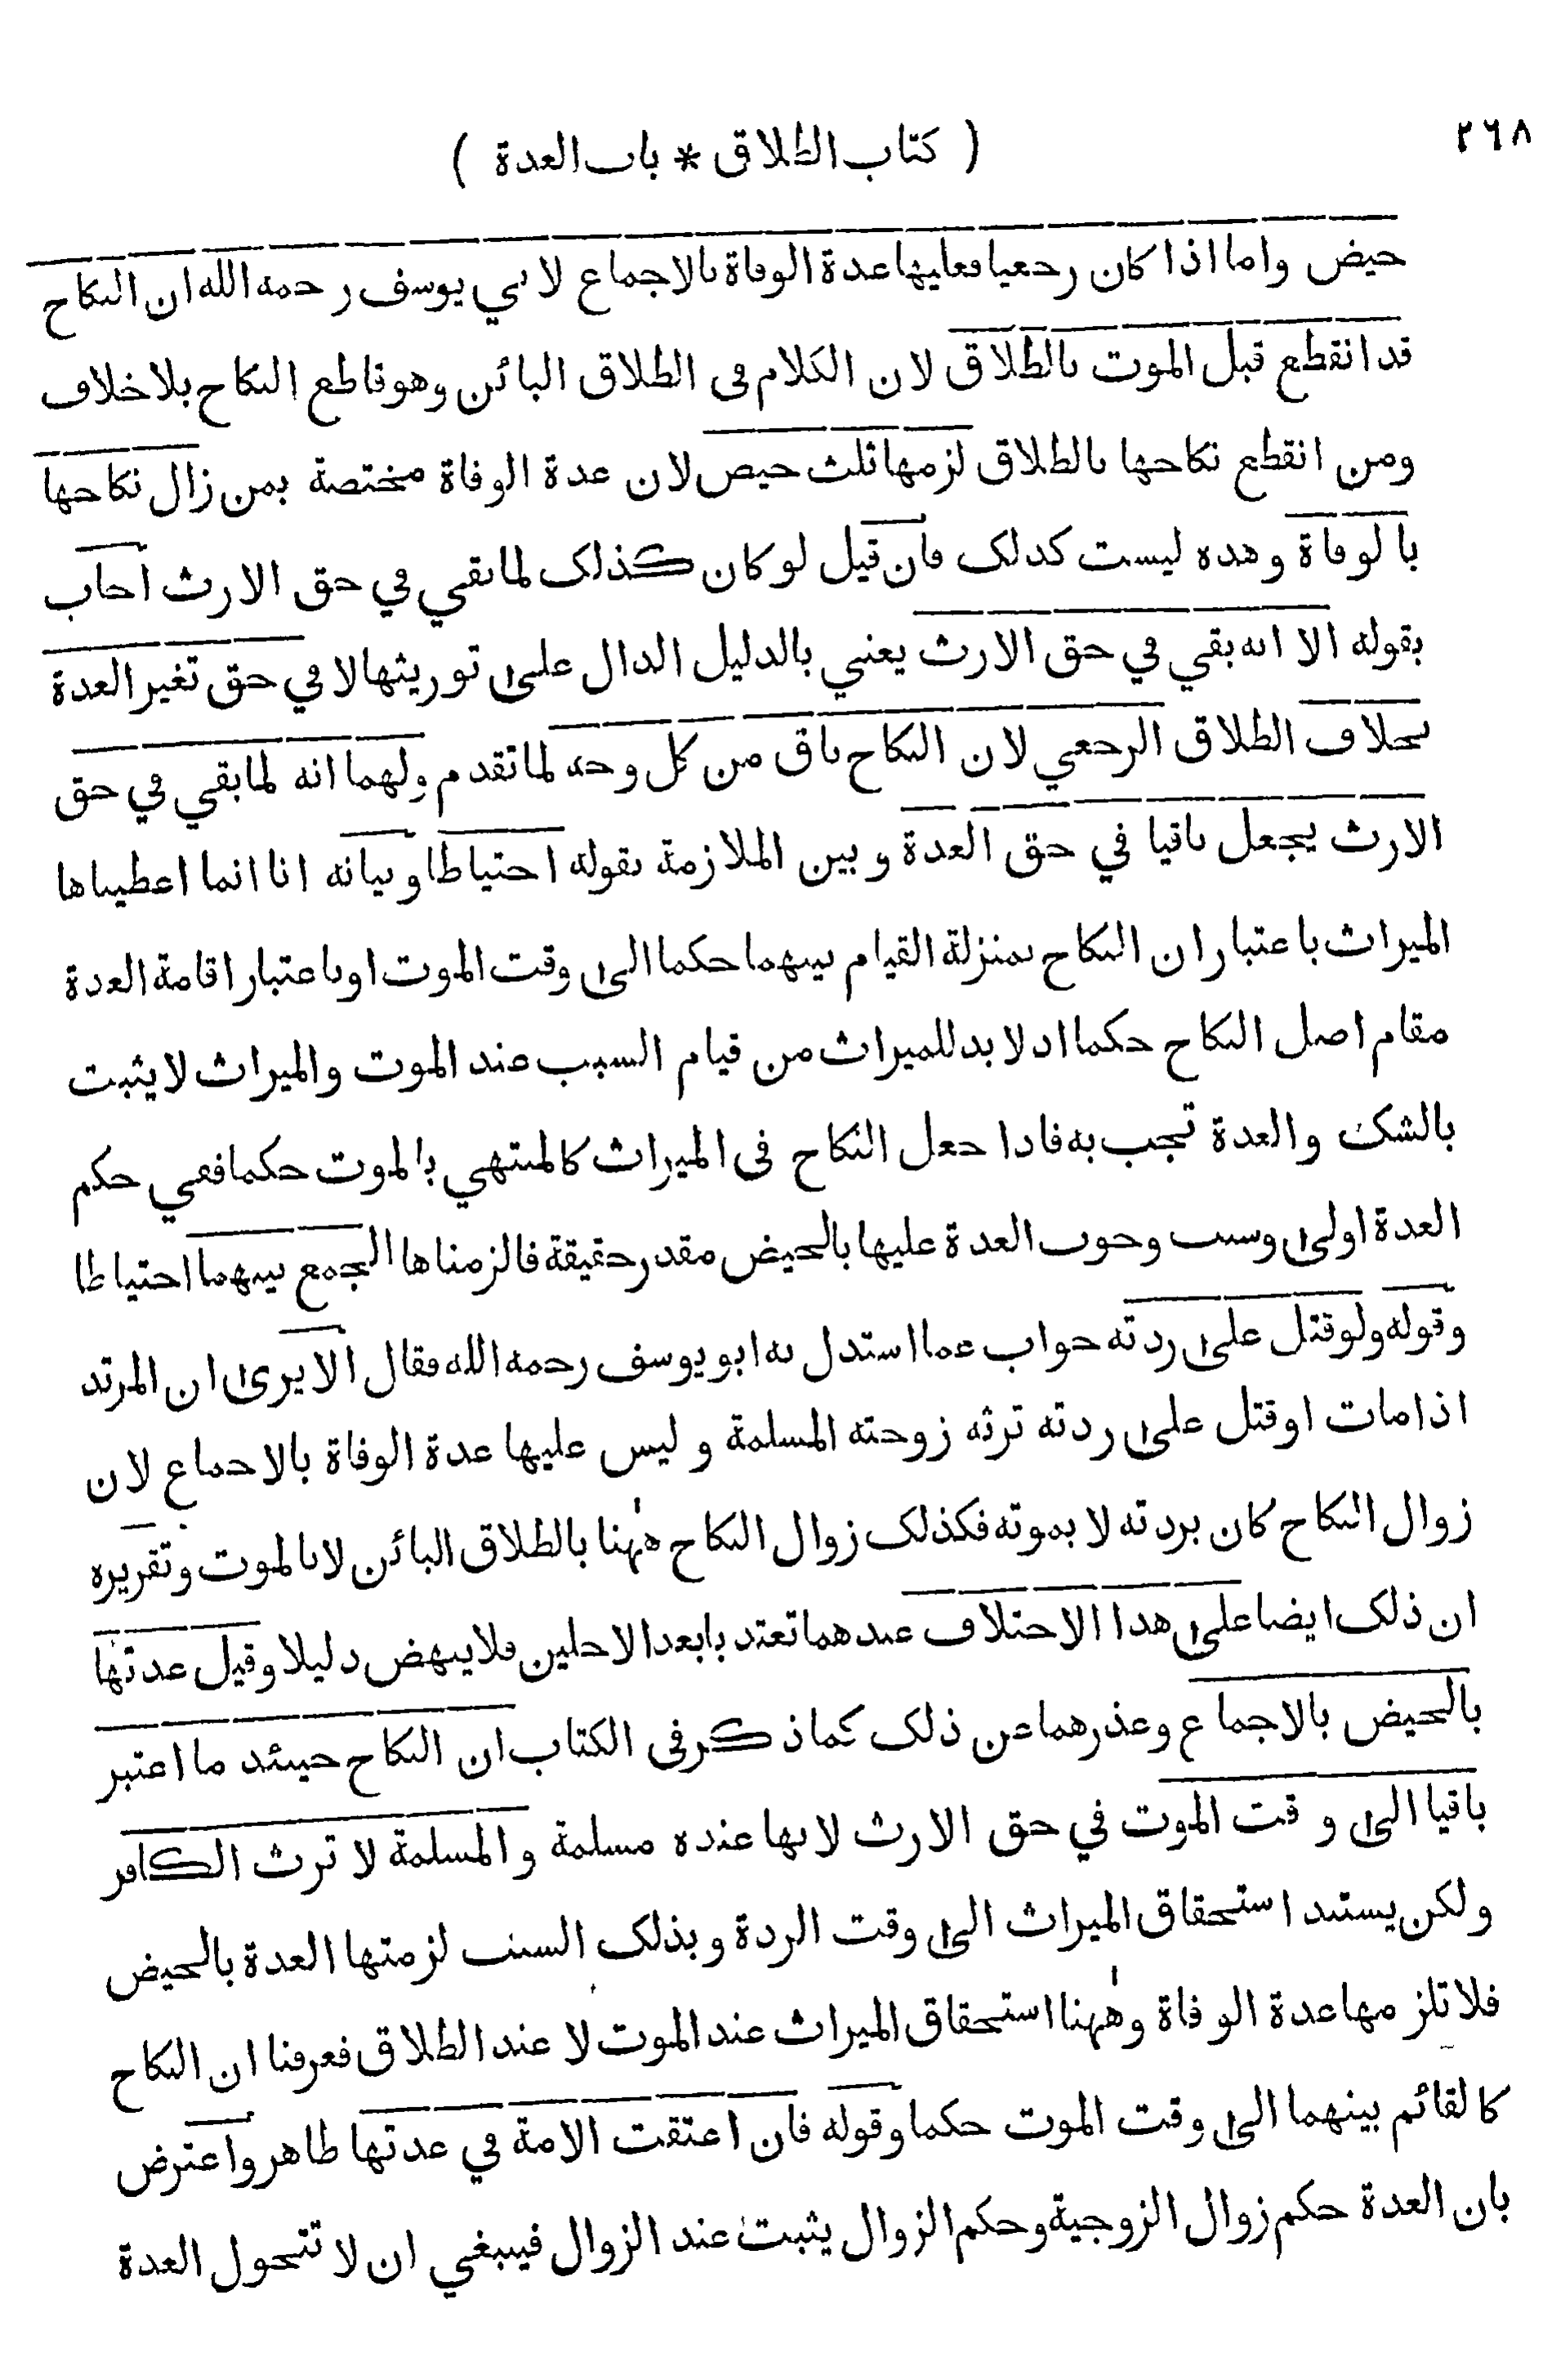 ٢٦٨
( كتاب الطلاق * باب العدة )
حيض واما اذا كان رجعيا فعليها عدة الوفاة بالاجماع لابي يوسف رحمه الله ان النكاح
قد انقطع قبل الموت بالطلاق لان الكلام في الطلاق البائن وهو قاطع النكاح بلا خلاف
ومن انقطع نكاحها بالطلاق لزمها ثلث حيض لان عدة الوفاة مختصة بمن زال نكاحها
بالوفاة وهذه ليست كذلك فان قيل لو كان كذلك لما بقي في حق الارث اجاب
بقوله الا انه بقي في حق الارث يعني بالدليل الدال على توريثها لا في حق تغير العدة
بخلاف الطلاق الرجعي لان النكاح باق من كل وجه لما تقدم ولهما انه لما بقي في حق
الارث يجعل باقيا في حق العدة وبين الملازمة بقوله احتياطا وبيانه انا انما اعطيناها
الميراث باعتبار ان النكاح بمنزلة القيام بينهما حكما الى وقت الموت او باعتبار اقامة العدة
مقام اصل النكاح حكما اذ لا بد للميراث من قيام السبب عند الموت والميراث لا يثبت
بالشك والعدة تجب به فاذا جعل النكاح في الميراث كالمنتهي بالموت حكما ففي حكم
العدة اولى وسبب وجوب العدة عليها بالحيض مقدر حقيقة فالزمناها الجمع بينهما احتياطا
وقوله ولو قتل على ردته جواب عما استدل به ابو يوسف رحمه الله فقال الا يرى ان المرتد
اذا مات او قتل على ردته ترثه زوجته المسلمة و ليس عليها عدة الوفاة بالاجماع لان
زوال النكاح كان بردته لا بموته فكذلك زوال النكاح ههنا بالطلاق البائن لا بالموت وتقريره
ان ذلك ايضا على هذا الاختلاف عندهما تعتد بابعد الاجلين فلا ينهض دليلا وقيل عدتها
بالحيض بالاجماع وعذرهما عن ذلك كما ذكر في الكتاب ان النكاح حينئذ ما اعتبر
باقيا الى وقت الموت في حق الارث لانها عنده مسلمة والمسلمة لا ترث الكافر
ولكن يستند استحقاق الميراث الى وقت الردة وبذلك السبب لزمتها العدة بالحيض
فلا تلزمها عدة الوفاة وههنا استحقاق الميراث عند الموت لا عند الطلاق فعرفنا ان النكاح
كالقائم بينهما الى وقت الموت حكما وقوله فان اعتقت الامة في عدتها ظاهر واعترض
بان العدة حكم زوال الزوجية وحكم الزوال يثبت عند الزوال فينبغي ان لا تتحول العدة